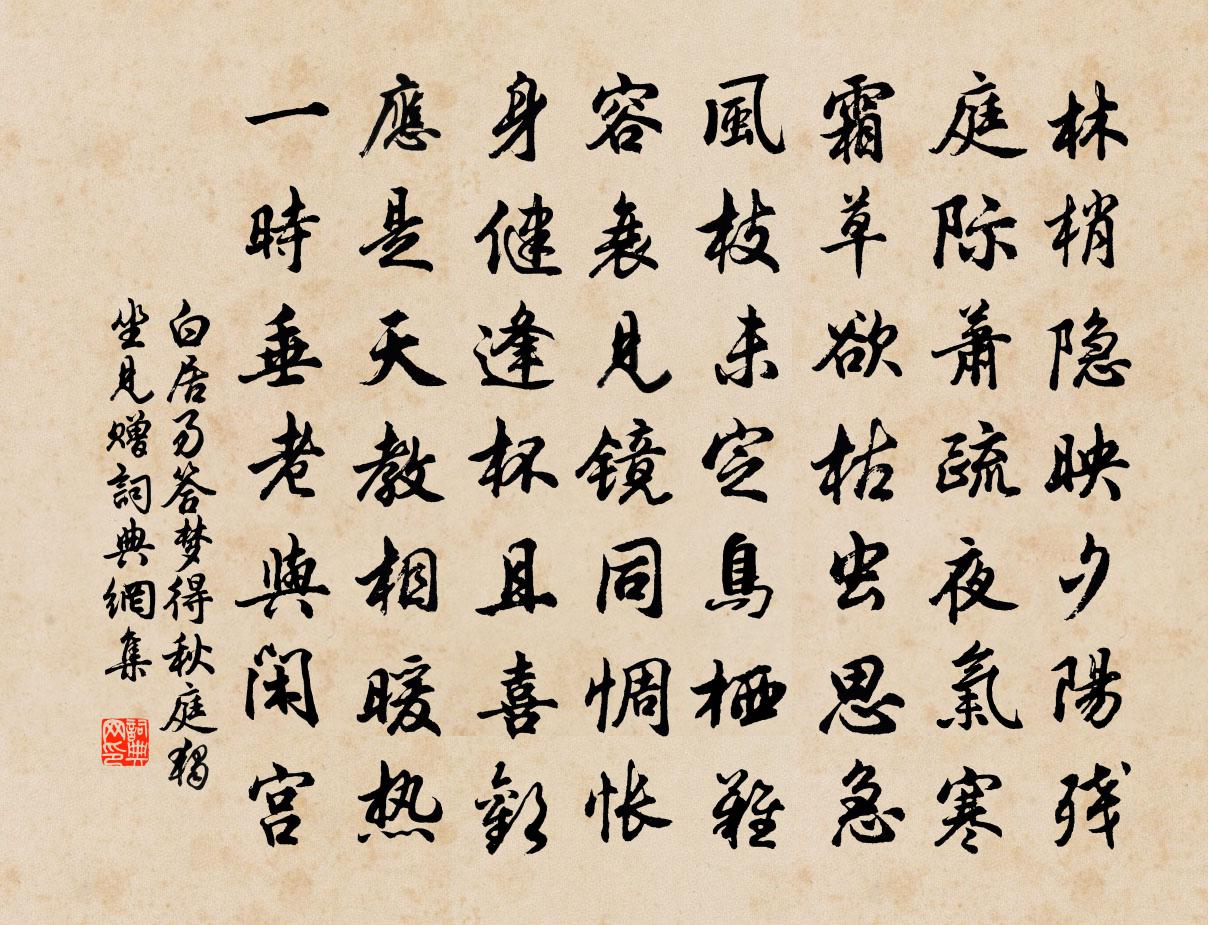 林梢隐映夕陽残
庭际萧疏夜氣寒
霜草欲枯虫思急
風枝未定鳥栖難
容衰見镜同惆怅
身健逢杯且喜歡
應是天教相暖热
一時垂老與闲官
白居易答梦得秋庭独
坐見赠詞典網集
詞典网印